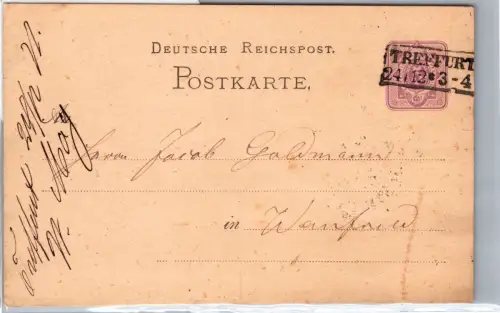 DEUTSCHE REICHSPOST.
POSTKARTE.
TREFFURT
24/12 * 3-4
An
Herrn Jacob Goldmann
in Wanfried